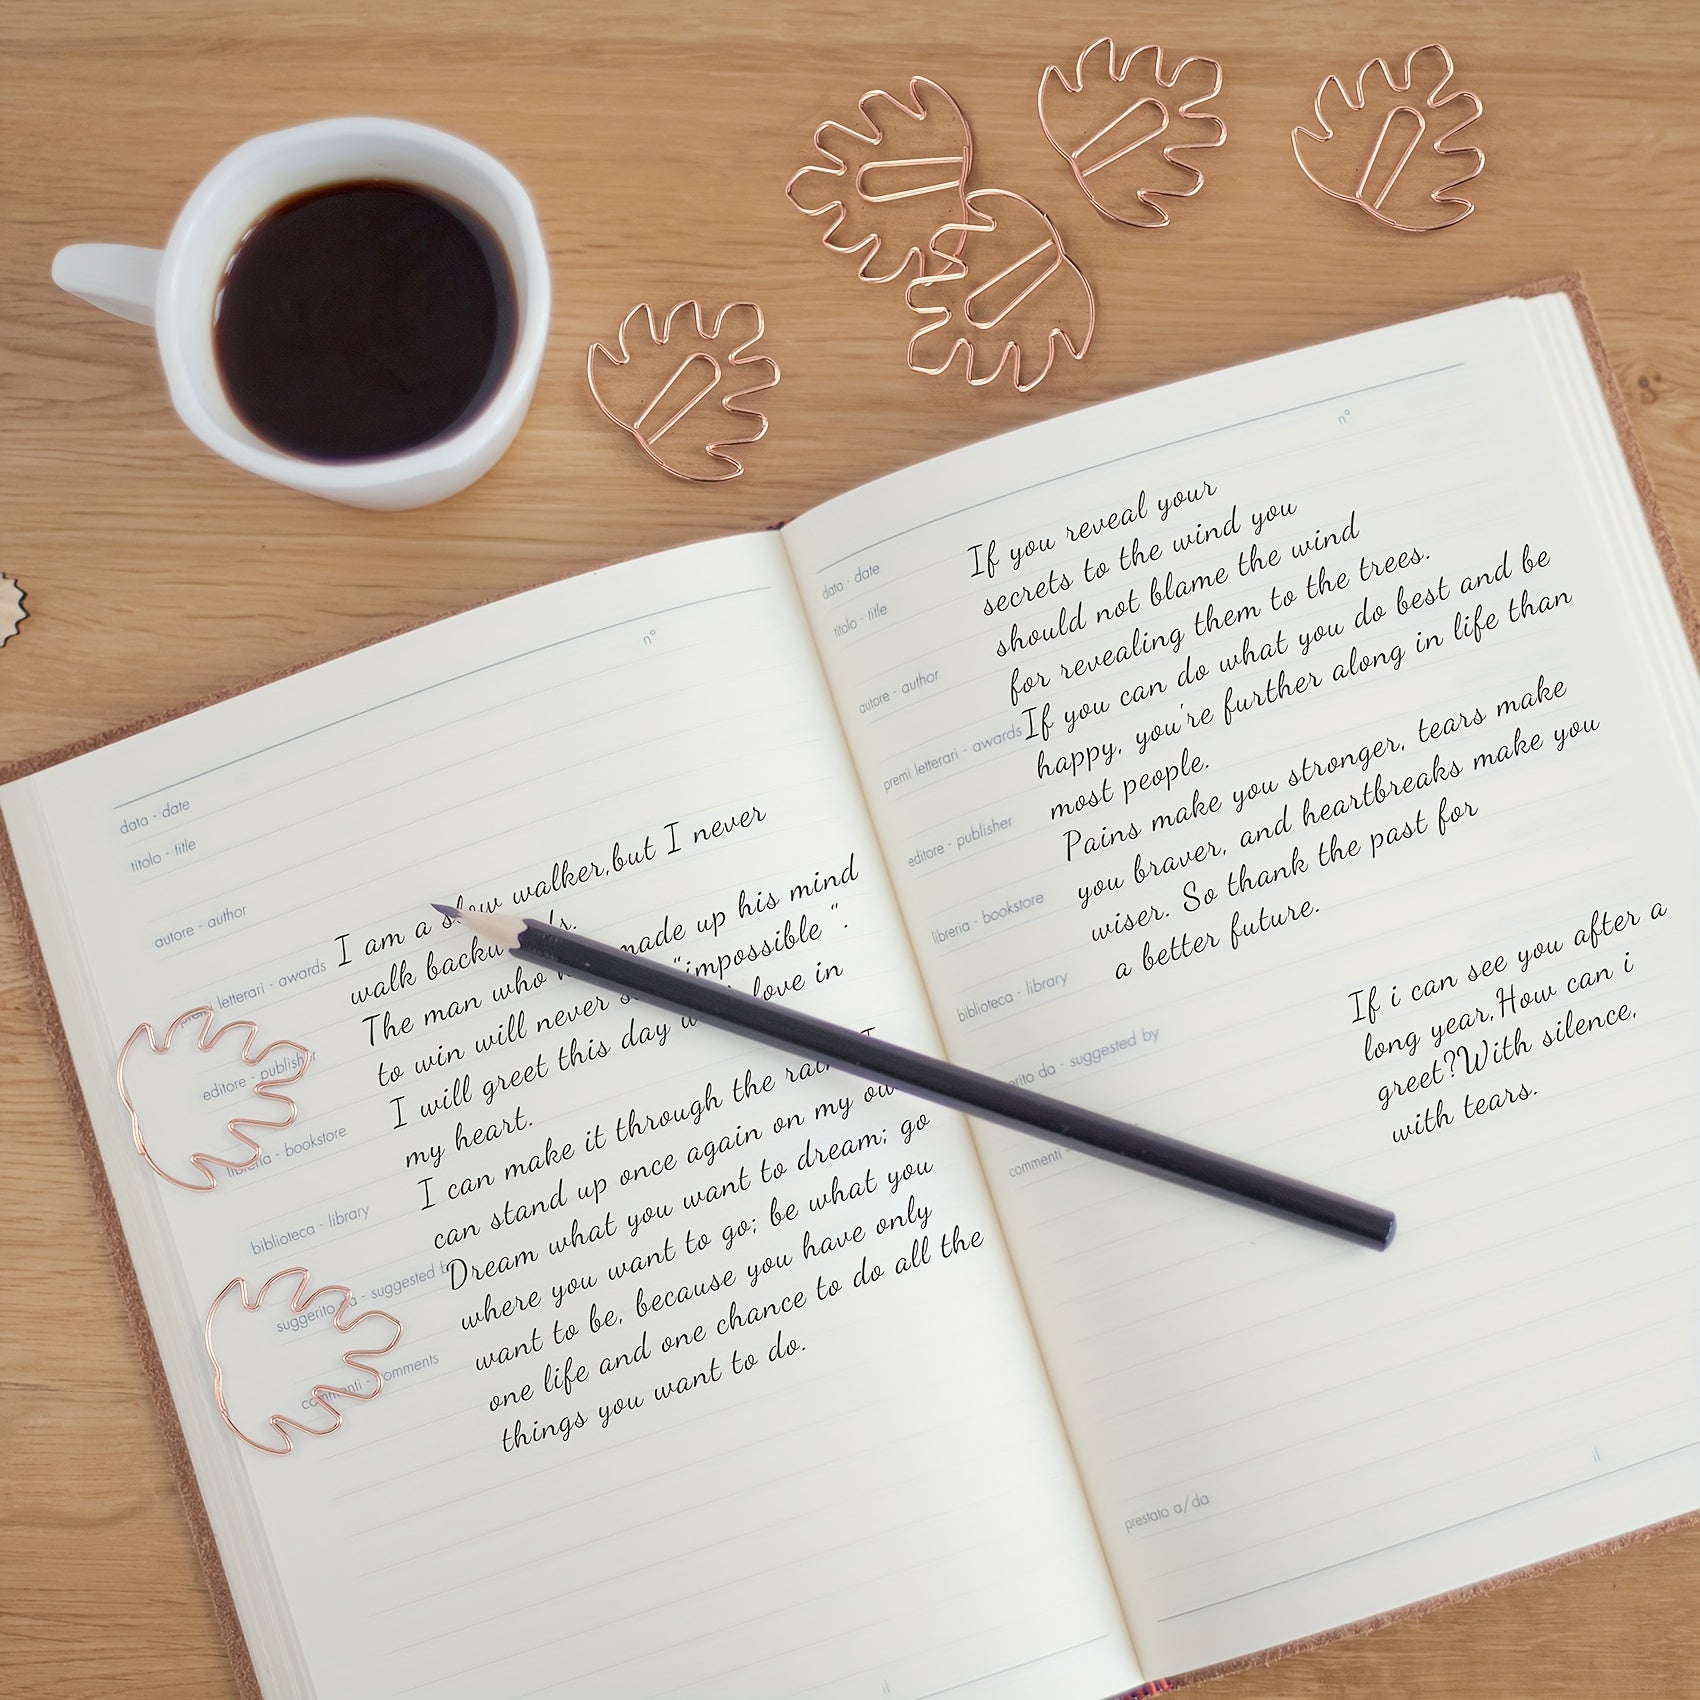 n°
data - date
titolo - title
autore - author
premi letterari - awards
editore - publisher
libreria - bookstore
biblioteca - library
suggerito da - suggested by
commenti - comments
I am a slow walker,but I never
walk backwards.
The man who made up his mind
to win will never "impossible ".
I will greet this day love in
my heart.
I can make it through the I
can stand up once again on my
Dream what you want to dream; go
where you want to go; be what you
want to be, because you have only
one life and one chance to do all the
things you want to do.
il
n°
data - date
titolo - title
autore - author
premi letterari - awards
editore - publisher
libreria - bookstore
biblioteca - library
da - suggested by
commenti -
prestato a/da
If you reveal your
secrets to the wind you
should not blame the wind
for revealing them to the trees.
If you can do what you do best and be
happy, you're further along in life than
most people.
Pains make you stronger, tears make
you braver, and heartbreaks make you
wiser. So thank the past for
a better future.
If i can see you after a
long year,How can i
greet?With silence,
with tears.
il